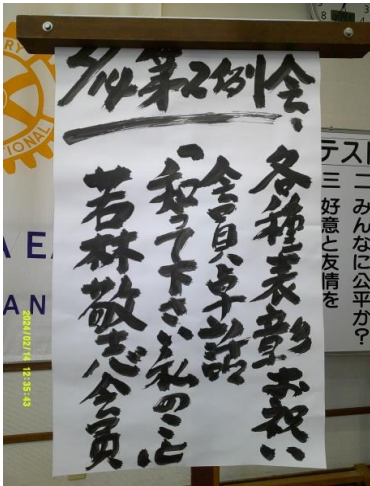 2/14 第2例会、
各種表彰お祝い
会員卓話
「知って下さい私のこと」
若林敬志会員
テスト
二 みんなに公平か?
三 好意と友情を
RY
TIONAL
A EA
AN
2024/02/14 12:35:43